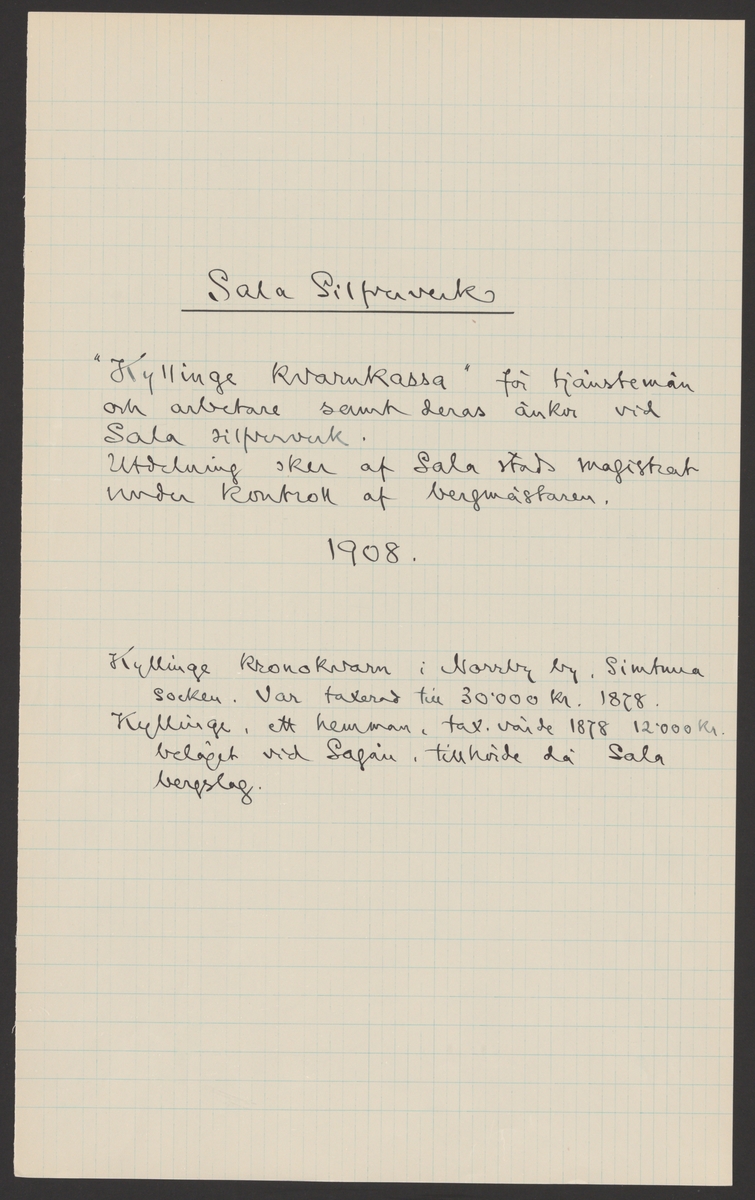 Sala Silfververk
"Kyllinge Kvarnkassa" för tjänstemän
och arbetare samt deras änkor vid
Sala silfververk.
Utdelning sker af Sala stads magistrat
under kontroll af bergmästaren.
1908.
Kyllinge kronokvarn i Norrby by, Simtuna
socken. Var taxerad till 30'000 kr. 1878.
Kyllinge, ett hemman, tax. värde 1878 12'000 kr.
beläget vid Sagån, tillhörde då Sala
bergslag.